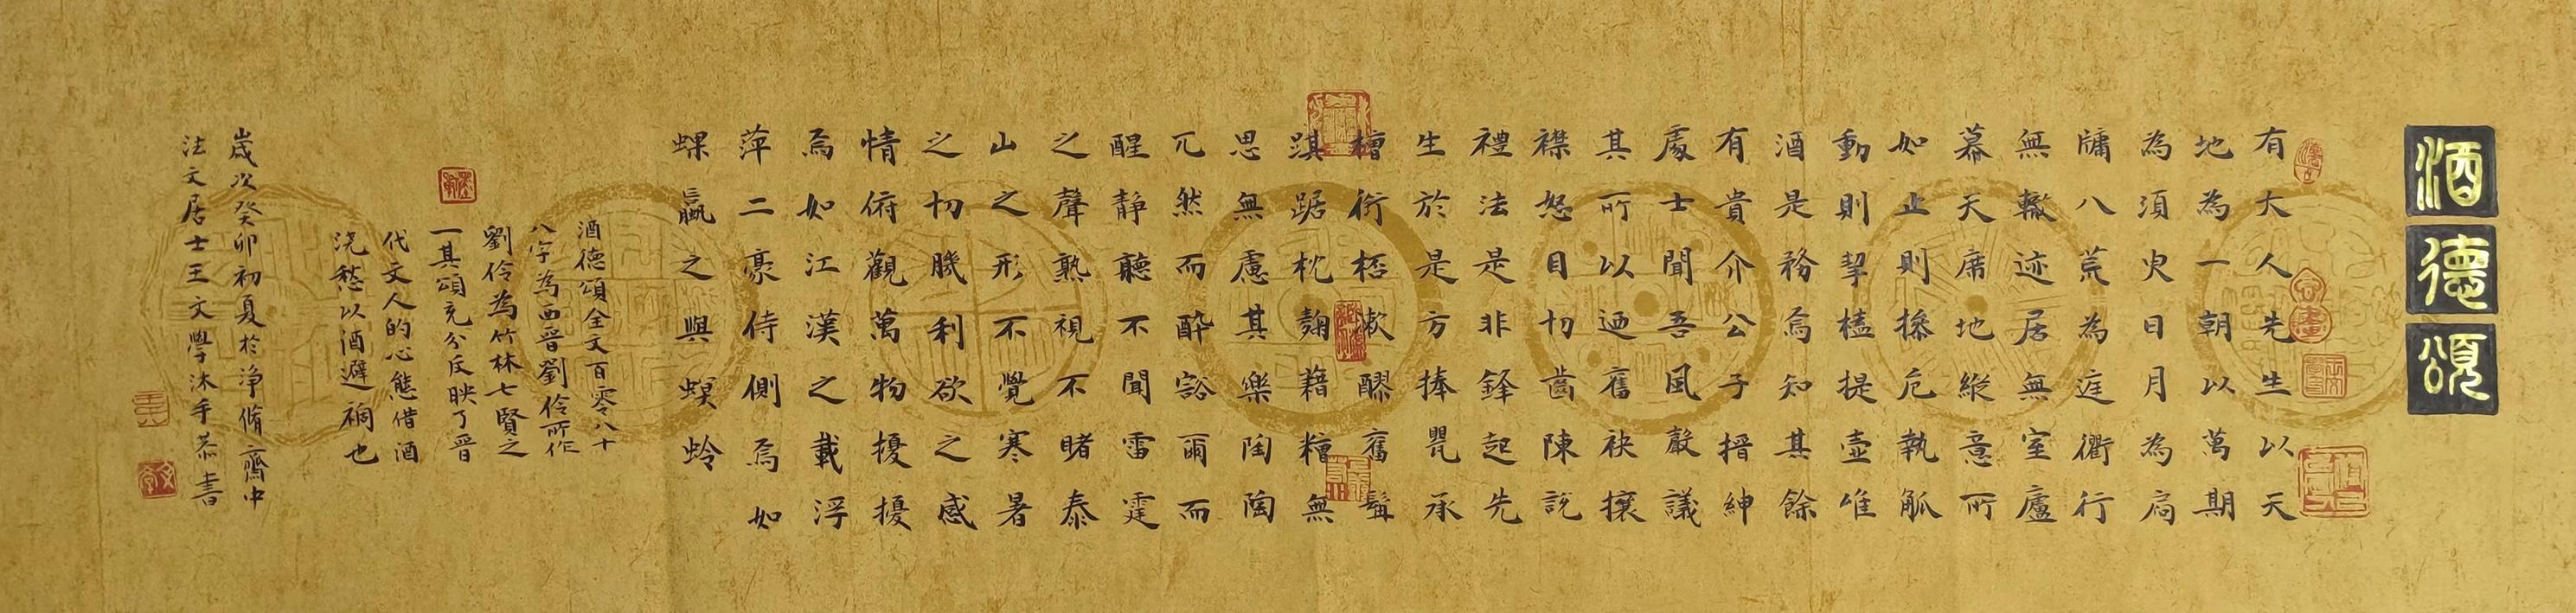 酒德頌
有大人先生以天
地為一朝以萬期
為須臾日月為扃
牖八荒為庭衢行
無轍迹居無室廬
幕天席地縱意所
如止則操卮執觚
動則挈榼提壺唯
酒是務焉知其餘
有貴介公子搢紳
處士聞吾風聲議
其所以迺奮袂攘
襟怒目切齒陳說
禮法是非鋒起先
生於是方捧甖承
槽銜桮漱醪奮髯
踑踞枕麴藉糟無
思無慮其樂陶陶
兀然而醉豁爾而
醒靜聽不聞雷霆
之聲熟視不睹泰
山之形不覺寒暑
之切肌利欲之感
情俯觀萬物擾擾
焉如江漢之載浮
萍二豪侍側焉如
蜾蠃之與螟蛉
酒德頌全文百零八十
八字為西晉劉伶所作
劉伶為竹林七賢之
一其頌充分反映了晉
代文人的心態借酒
浇愁以酒避禍也
歲次癸卯初夏於淨脩齋中
法文居士王文學沐手恭書